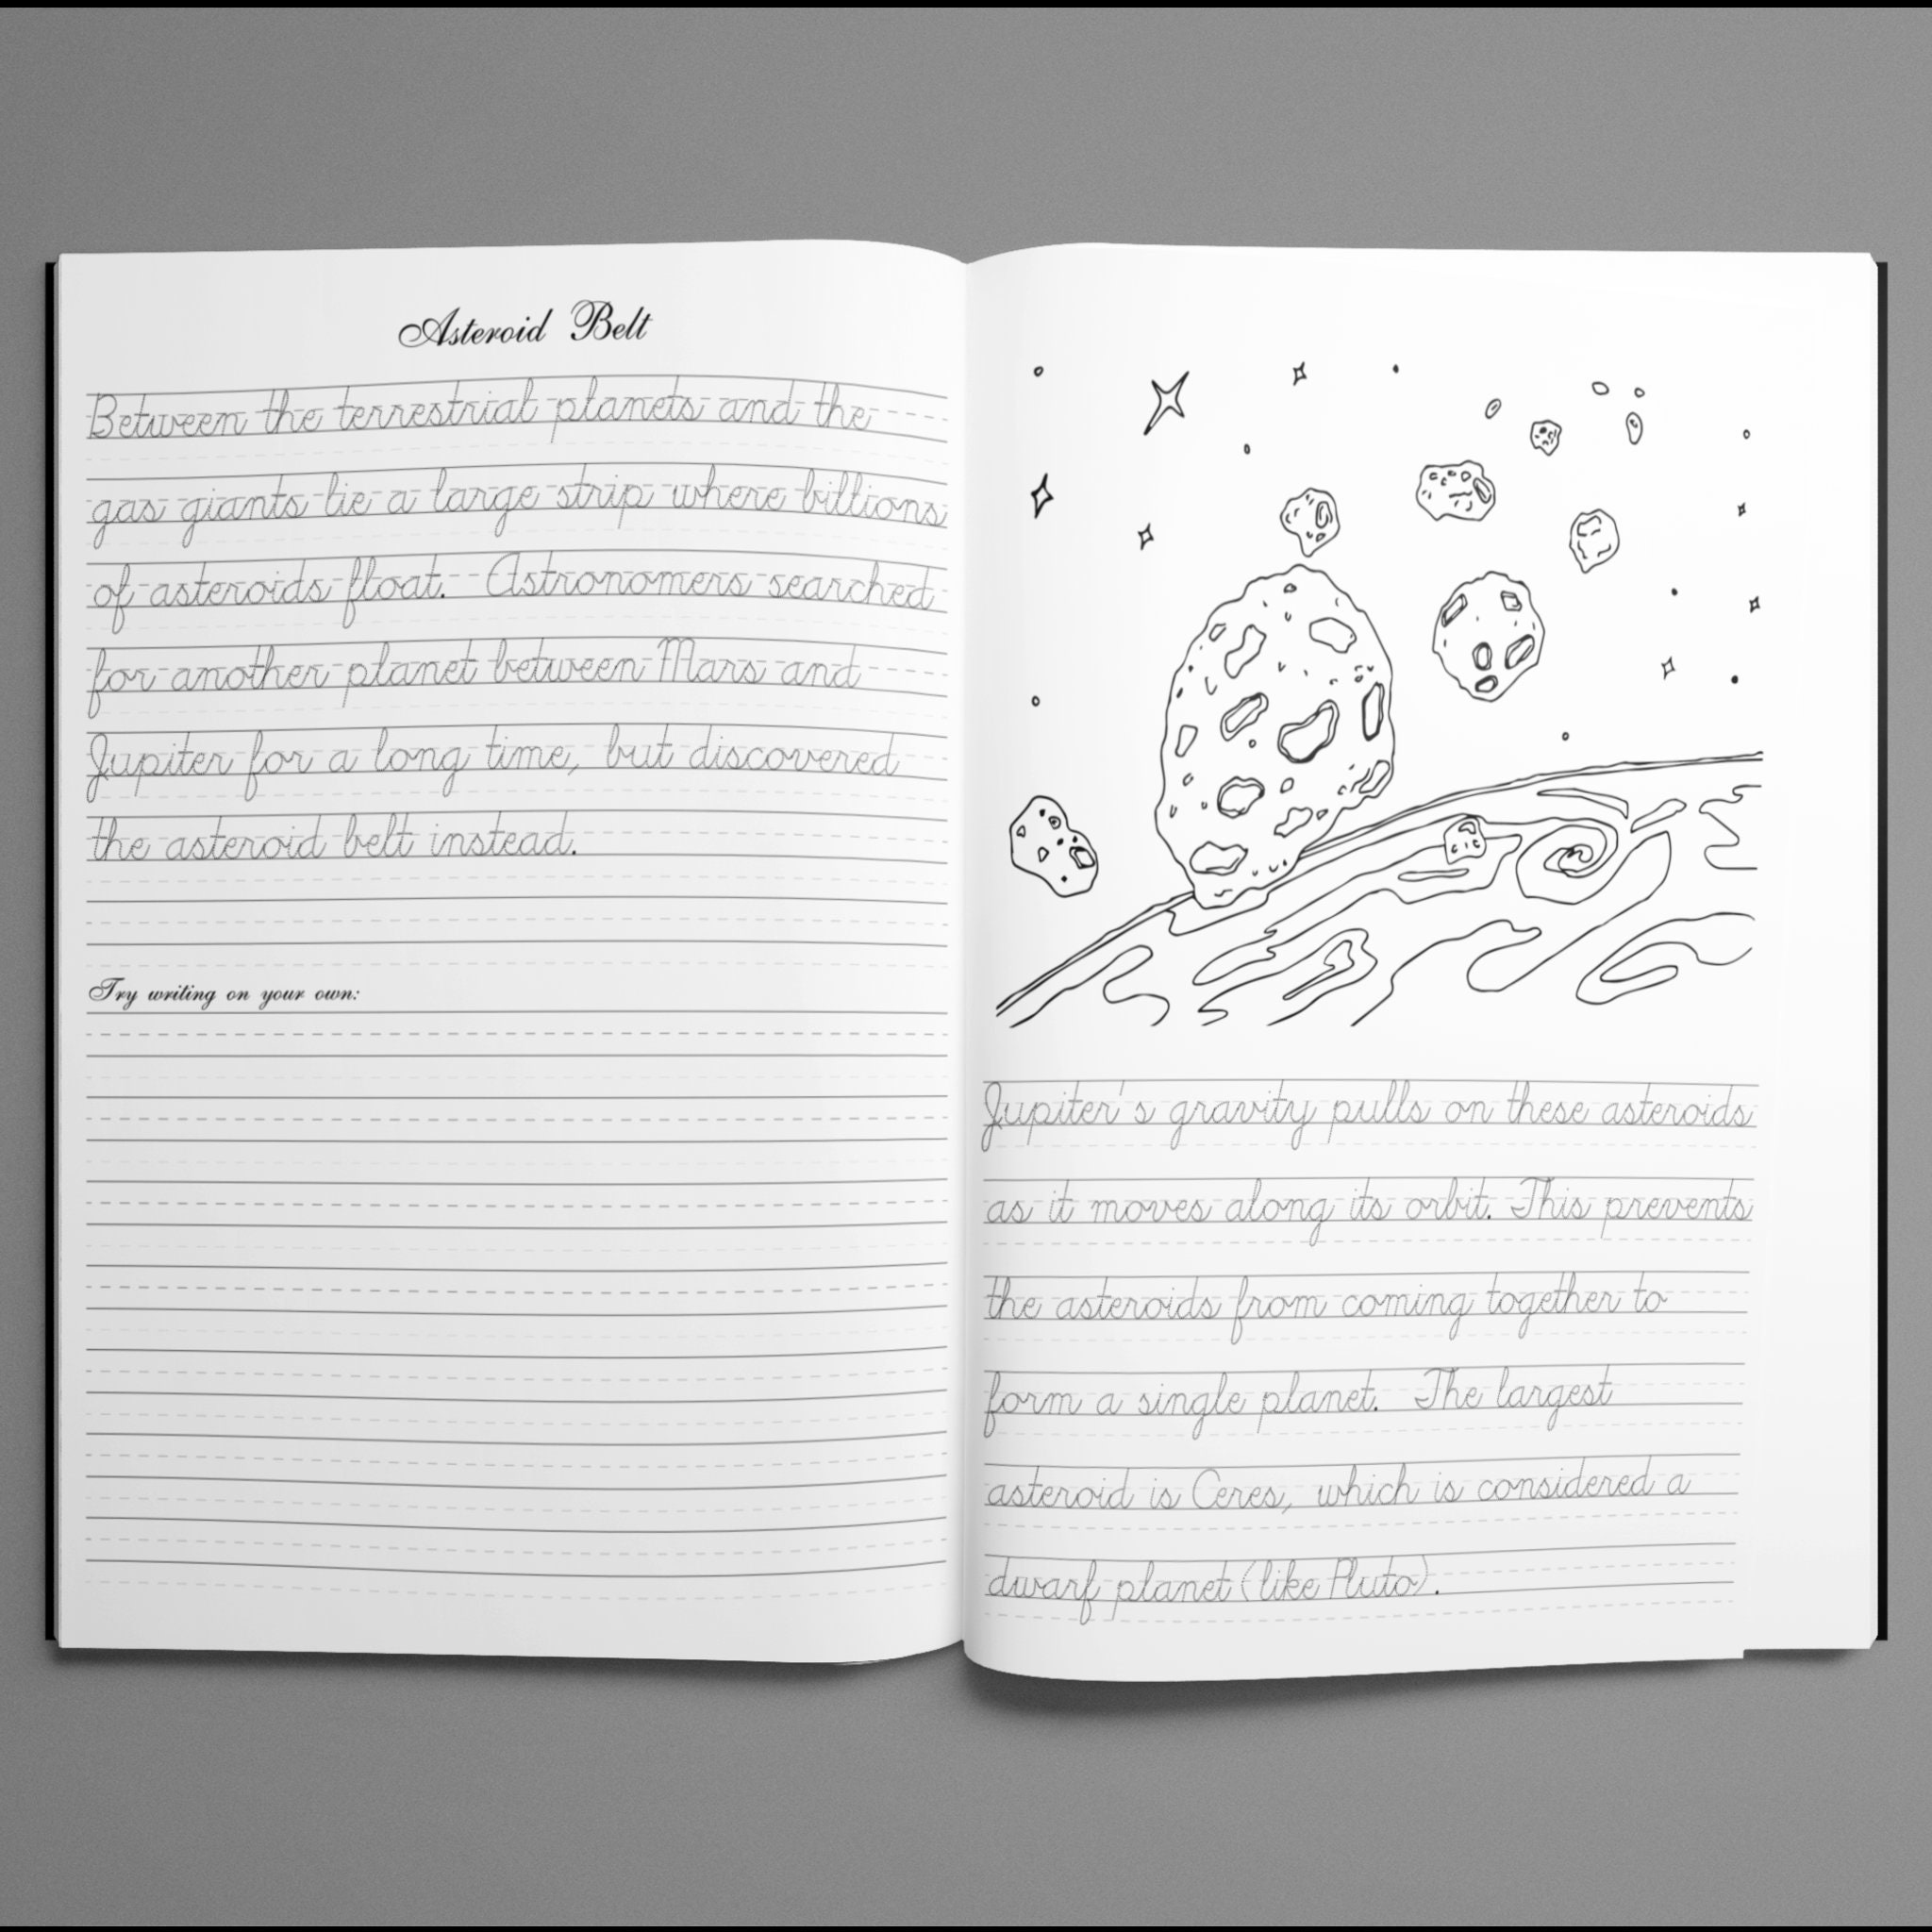 Asteroid Belt
Between the terrestrial planets and the
gas giants lie a large strip where billions
of asteroids float. Astronomers searched
for another planet between Mars and
Jupiter for a long time, but discovered
the asteroid belt instead.
Try writing on your own:
Jupiter's gravity pulls on these asteroids
as it moves along its orbit. This prevents
the asteroids from coming together to
form a single planet. The largest
asteroid is Ceres, which is considered a
dwarf planet (like Pluto).